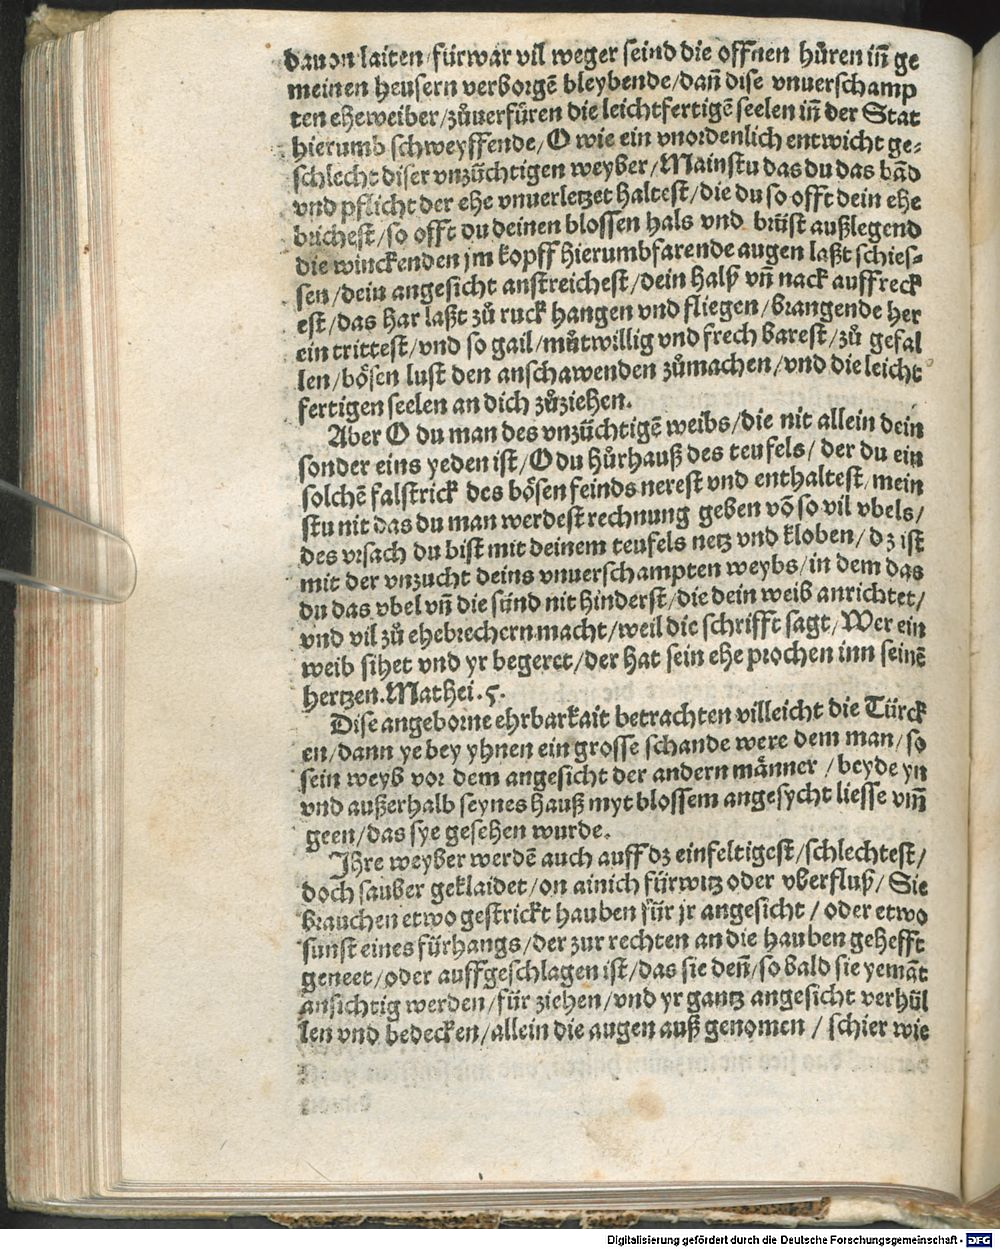 dauon laiten fürwar vil weger seind die offnen hůren iñ ge
meinen heusern verborgẽ bleybende/dañ dise vnuerschamp
ten eheweiber/zůuerfüren die leichtfertigẽ seelen iñ der Stat
hierumb schweyffende/O wie ein vnordenlich entwicht ge⸗
schlecht diser vnzüchtigen weyber/Mainstu das du das bãd
vnd pflicht der ehe vnuerletzet haltest/die du so offt dein ehe
brichest/so offt du deinen blossen hals vnd brüst außlegend
die winckenden jm kopff hierumbfarende augen laßt schies⸗
sen/dein angesicht anstreichest/dein halß vñ nack auffreck
est/das har laßt zů ruck hangen vnd fliegen/brangende her
ein trittest/vnd so gail/můtwillig vnd frech barest/zů gefal
len/bösen lust den anschawenden zůmachen/vnd die leicht
fertigen seelen an dich zůziehen.
Aber O du man des vnzüchtigẽ weibs/die nit allein dein
sonder eins yeden ist/O du Hůrhauß des teufels/der du ein
solchẽ falstrick des bösen feinds nerest vnd enthaltest/mein
stu nit das du man werdest rechnung geben võ so vil vbels/
des vrsach du bist mit deinem teufels netz vnd kloben/dz ist
mit der vnzucht deins vnuerschampten weybs/in dem das
du das vbel vñ die sünd nit hinderst/die dein weib anrichtet/
vnd vil zů ehebrechern macht/weil die schrifft sagt/Wer ein
weib sihet vnd yr begeret/der hat sein ehe prochen inn seinẽ
hertzen.Mathei.5.
Dise angeborne ehrbarkait betrachten villeicht die Türck
en/dann ye bey yhnen ein grosse schande were dem man/so
sein weyb vor dem angesicht der andern männer/beyde yn
vnd außerhalb seynes hauß myt blossem angesycht liesse vm̃
geen/das sye gesehen wurde.
Ihre weyber werdẽ auch auff dz einfeltigest/schlechtest/
doch sauber geklaidet/on ainich fürwitz oder vberfluß/Sie
brauchen etwo gestrickt hauben für jr angesicht/oder etwo
sunst eines fürhangs/der zur rechten an die hauben gehefft
geneet/oder auffgeschlagen ist/das sie deñ/so bald sie yemãt
ansichtig werden/für ziehen/vnd yr gantz angesicht verhül
len vnd bedecken/allein die augen auß genomen/schier wie
Digitalisierung gefördert durch die Deutsche Forschungsgemeinschaft - DFG